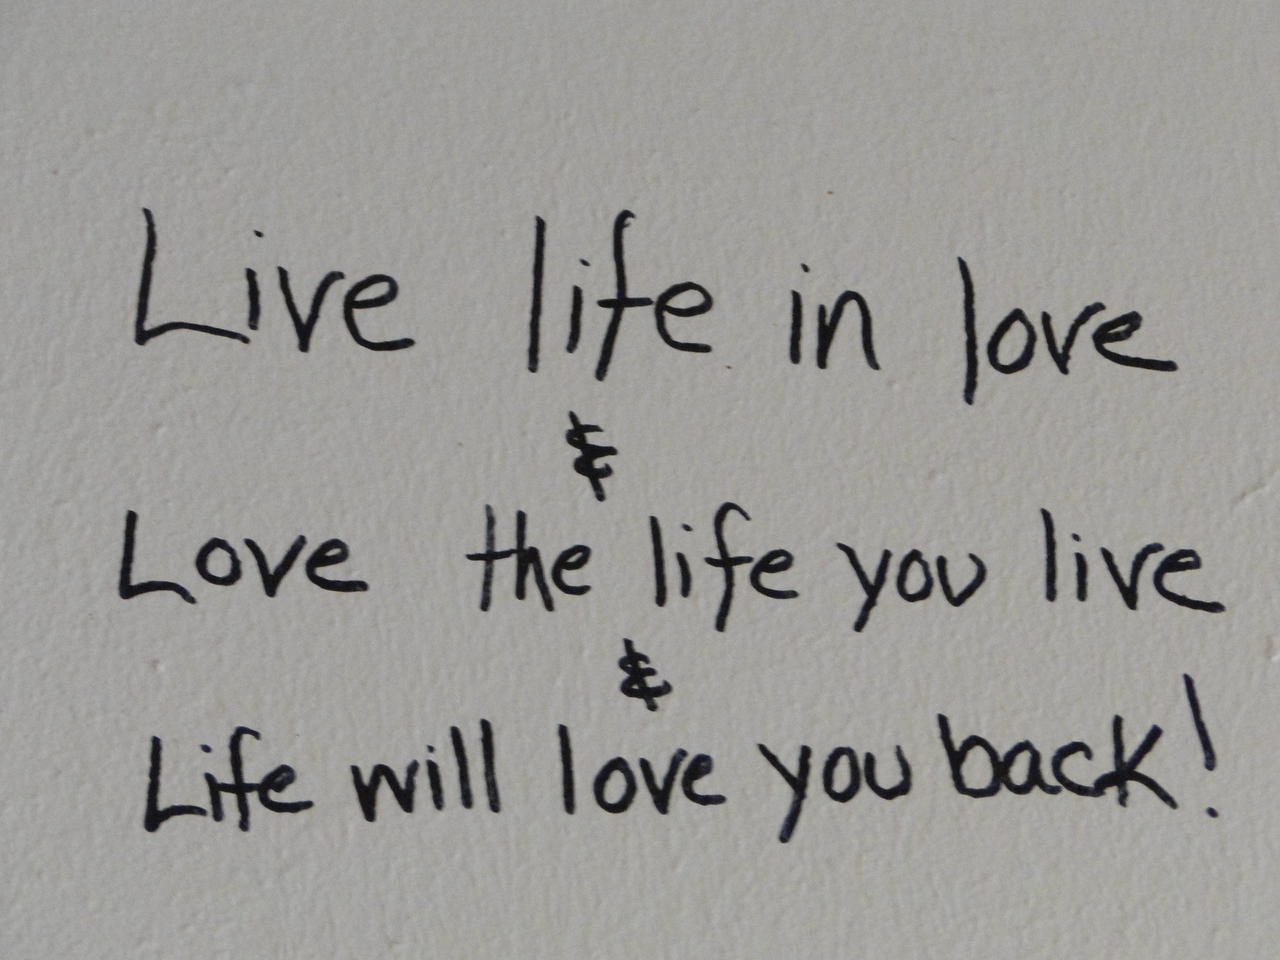 Live life in love
&
Love the life you live
&
Life will love you back!